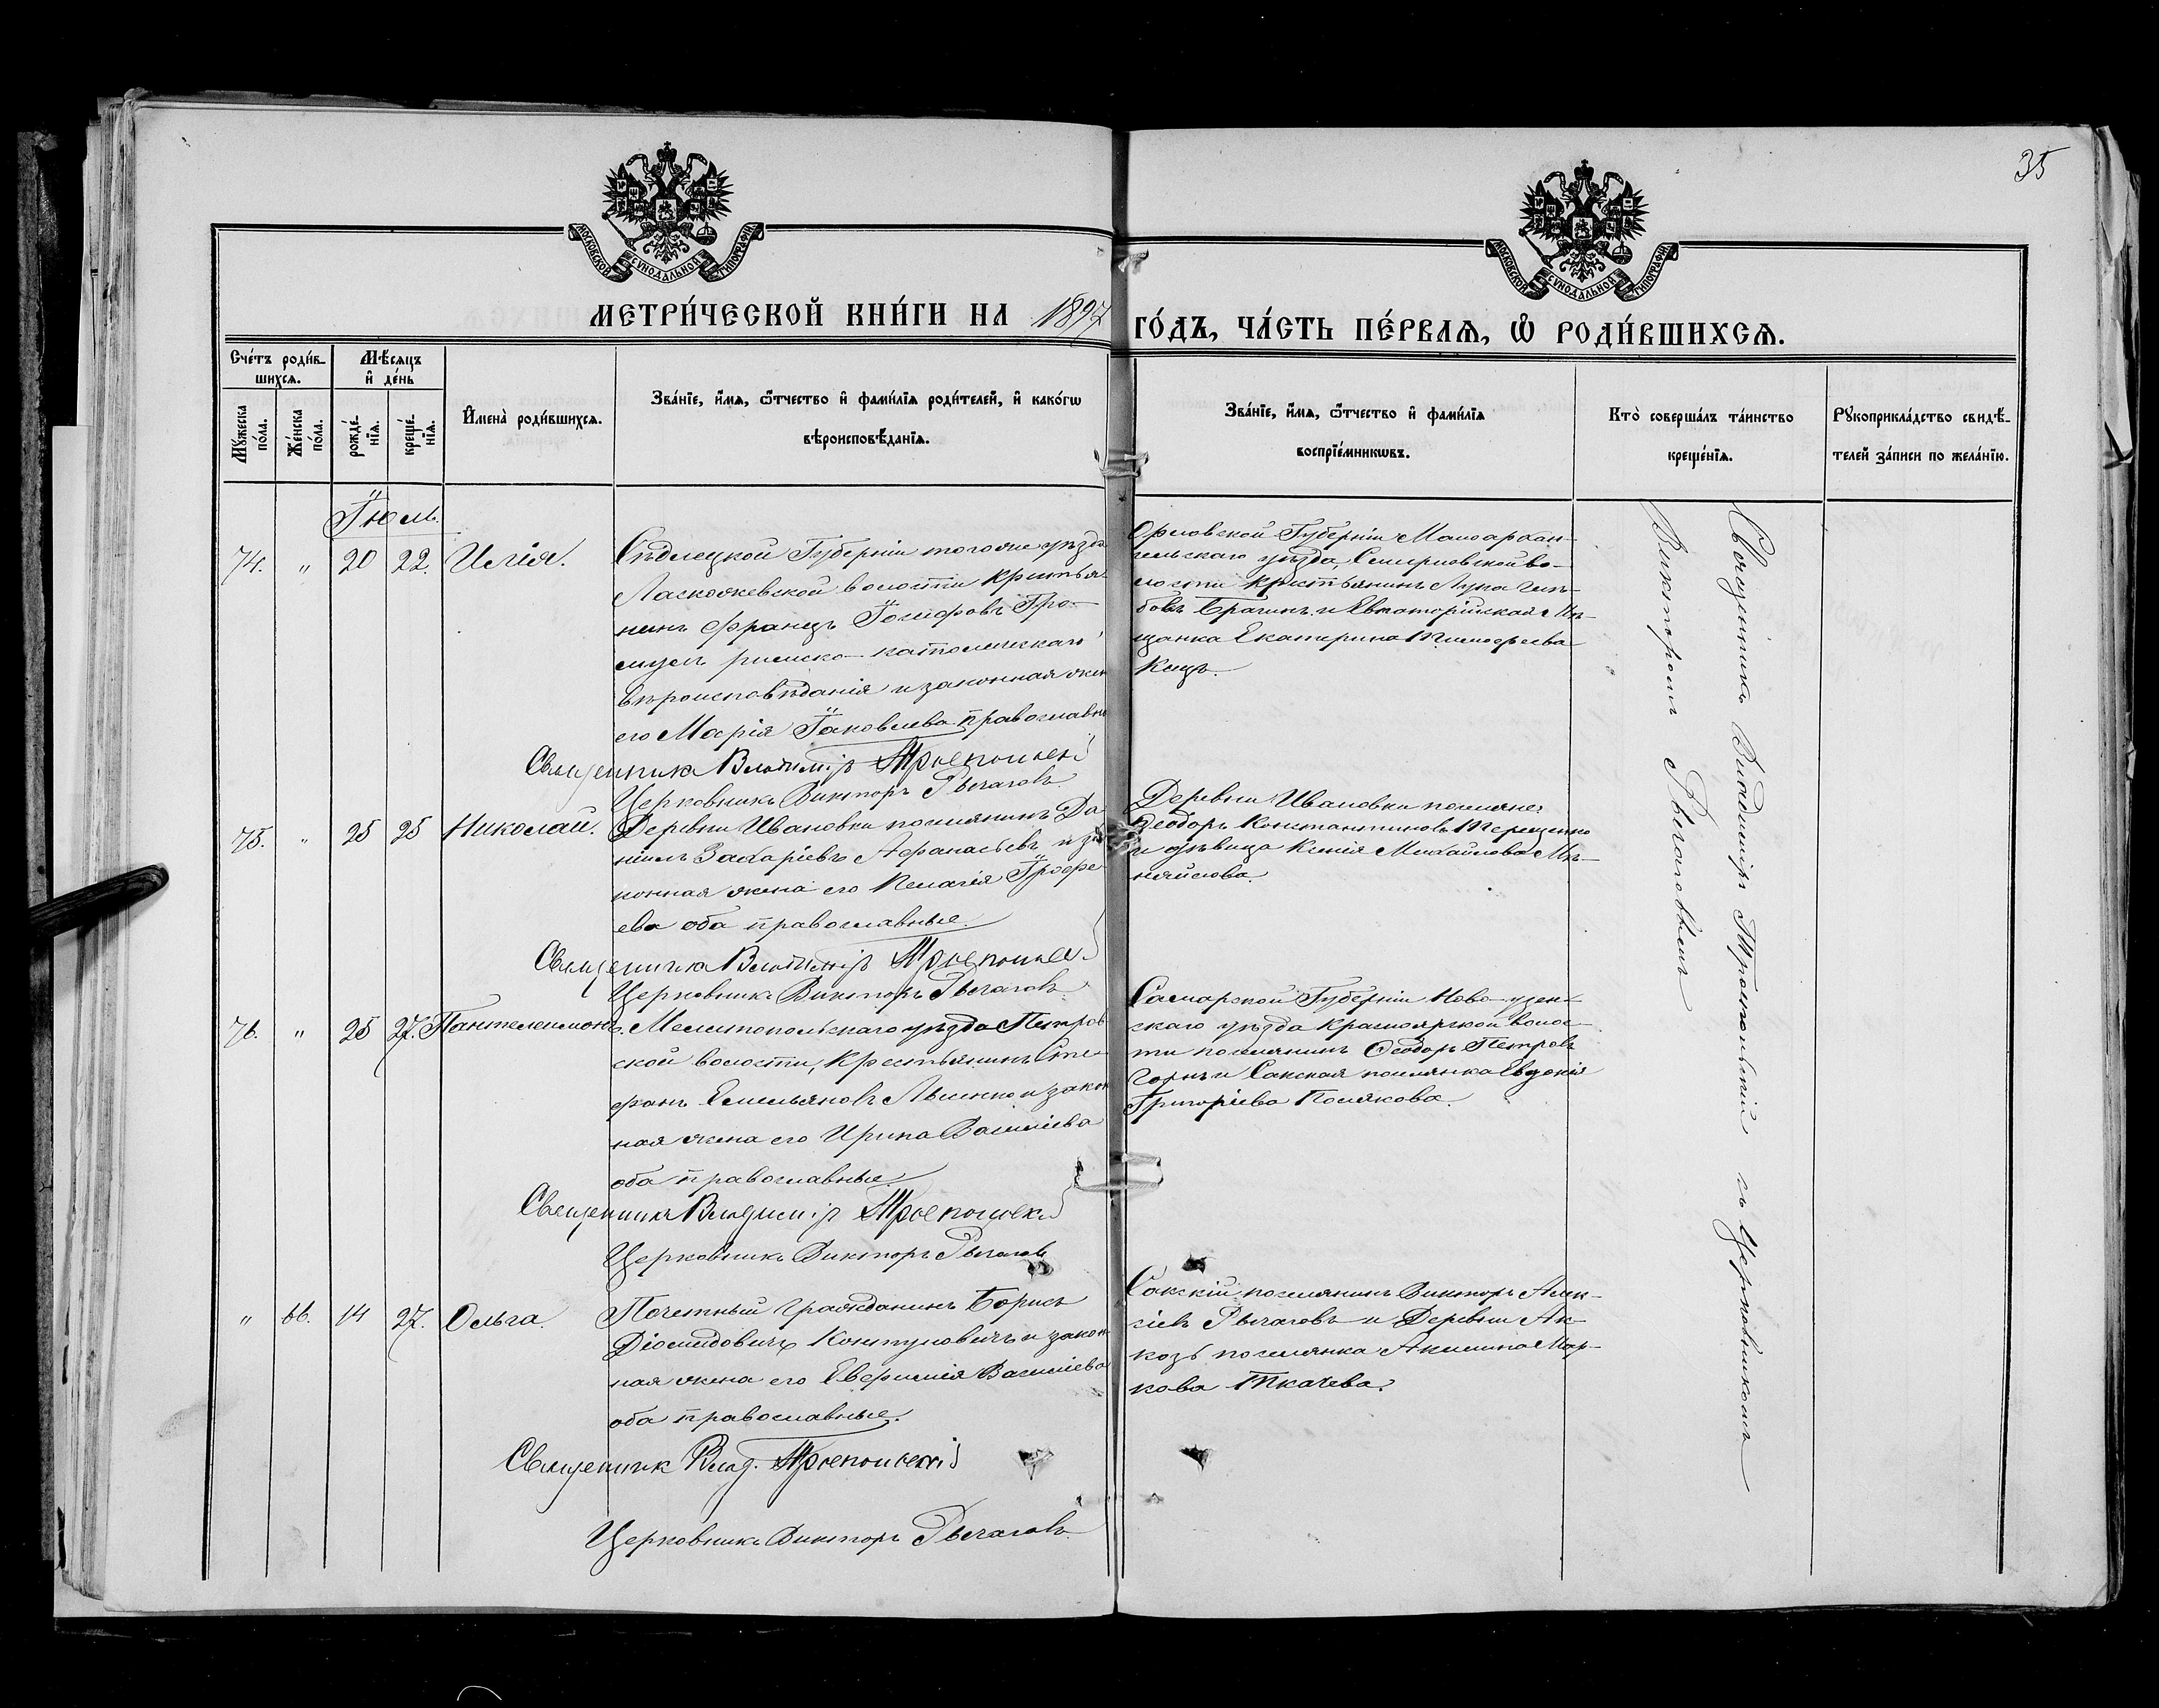 35
МОСКОВСКОЙ СѴНОДАЛЬНОЙ ТИПОГРАФІИ
МОСКОВСКОЙ СѴНОДАЛЬНОЙ ТИПОГРАФІИ
МЕТРИ́ЧЕСКОЙ КНИ́ГИ НА 1897 ГО́ДЪ, ЧА́СТЬ ПЕ́РВАѦ, Ѡ҆ РОДИ́ВШИХСѦ.
Сче́тъ роди́в-
шихсѧ.
Мѣ́сѧцъ
и҆ де́нь
Мꙋ́жеска
по́ла.
Же́нска
по́ла.
рожде́-
нїѧ.
креще́-
нїѧ.
И҆мена̀ роди́вшихсѧ.
Зва́нїе, и҆́мѧ, ѻ҆́тчество и҆ фами́лїѧ роди́телей, и҆ како́гѡ
вѣроисповѣ́данїѧ.
Зва́нїе, и҆́мѧ, ѻ҆́тчество и҆ фами́лїѧ
воспрїе́мникѡвъ.
Кто̀ соверша́лъ та́инство
креще́нїѧ.
Рꙋкоприкла́дство свидѣ́-
телей за́писи по жела́нїю.
Іюль.
74. " 20 22. Илія.
Сѣдлецкой Губерніи того же уѣзда
волости Крестья-
нинъ Францъ Іосифовъ Гро-
римско-католическаго
вѣроисповѣданія и законная жена
его Марія Іаковлева православн
Священникъ Владиміръ Троепольскій
Церковникъ Викторъ Рычаговъ
Орловской Губерніи Малоархан-
гельскаго уѣзда,
лости Крестьянинъ Лука Глѣ-
бовъ Брагинъ и Евпаторійская Мѣ-
щанка Екатерина Тимофеева
Кацъ.
75. " 25 25 Николай.
Деревни Ивановки поселянинъ Да-
ніилъ Захаріевъ Афанасьевъ и за
конная жена его Пелагія
ева оба православные.
Священникъ Владиміръ Троепольскій
Церковникъ Викторъ Рычаговъ
Деревни Ивановки поселяне:
Ѳеодоръ Константиновъ Терещенко
и дѣвица Ксенія Михайлова Ми-
няйлова.
76. " 25 27. Пантелеимонъ.
Мелитопольскаго уѣзда Петров
ской волости, Крестьянинъ Сте-
фанъ Емельяновъ Лысенко и закон
ная жена его Ирина Василіева
оба православные.
Священникъ Владиміръ Троепольскій
Церковникъ Викторъ Рычаговъ
Самарской Губерніи Ново-узен-
скаго уѣзда Красноярской волос-
ти поселянинъ Ѳеодоръ Петровъ
Горнъ и Сакская поселянка Евдокія
Григоріева Полякова.
" 66. 14 27. Ольга.
Почетный Гражданинъ Борисъ
Діомидовичъ и закон
ная жена его Евфимія Василіева
оба православные.
Священникъ Влад. Троепольскій
Церковникъ Викторъ Рычаговъ
Сакскій поселянинъ Викторъ Алек-
сіевъ Рычаговъ и Деревни Ак-
козъ поселянка Акилина Мар-
кова Ткачева.
Священникъ Владиміръ Троепольскій съ Церковникомъ
Викторомъ Рычаговымъ